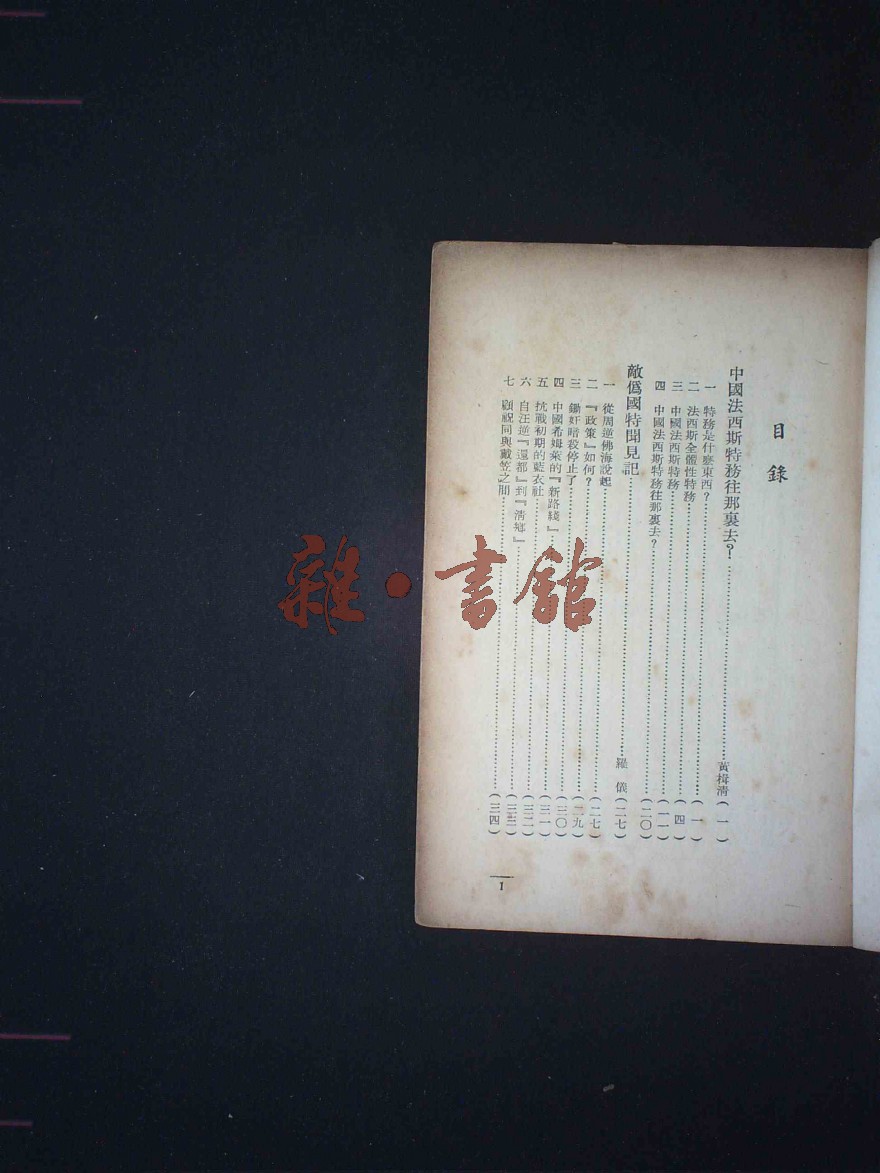 目錄
中國法西斯特務往那裏去？……黃楫清(一)
一 特務是什麽東西？……(一)
二 法西斯全體性特務……(四)
三 中國法西斯特務……(一一)
四 中國法西斯特務往那裏去？……(二〇)
敵僞國特聞見記……羅儀(二七)
一 從周逆佛海說起……(二七)
二 『政策』如何？……(二九)
三 鋤奸暗殺停止了……(三〇)
四 中國希姆萊的『新路綫』……(三一)
五 抗戰初期的藍衣社……(三二)
六 自汪逆『還都』到『淸鄕』……(三三)
七 顧祝同與戴笠之間……(三四)
I
雜·書館